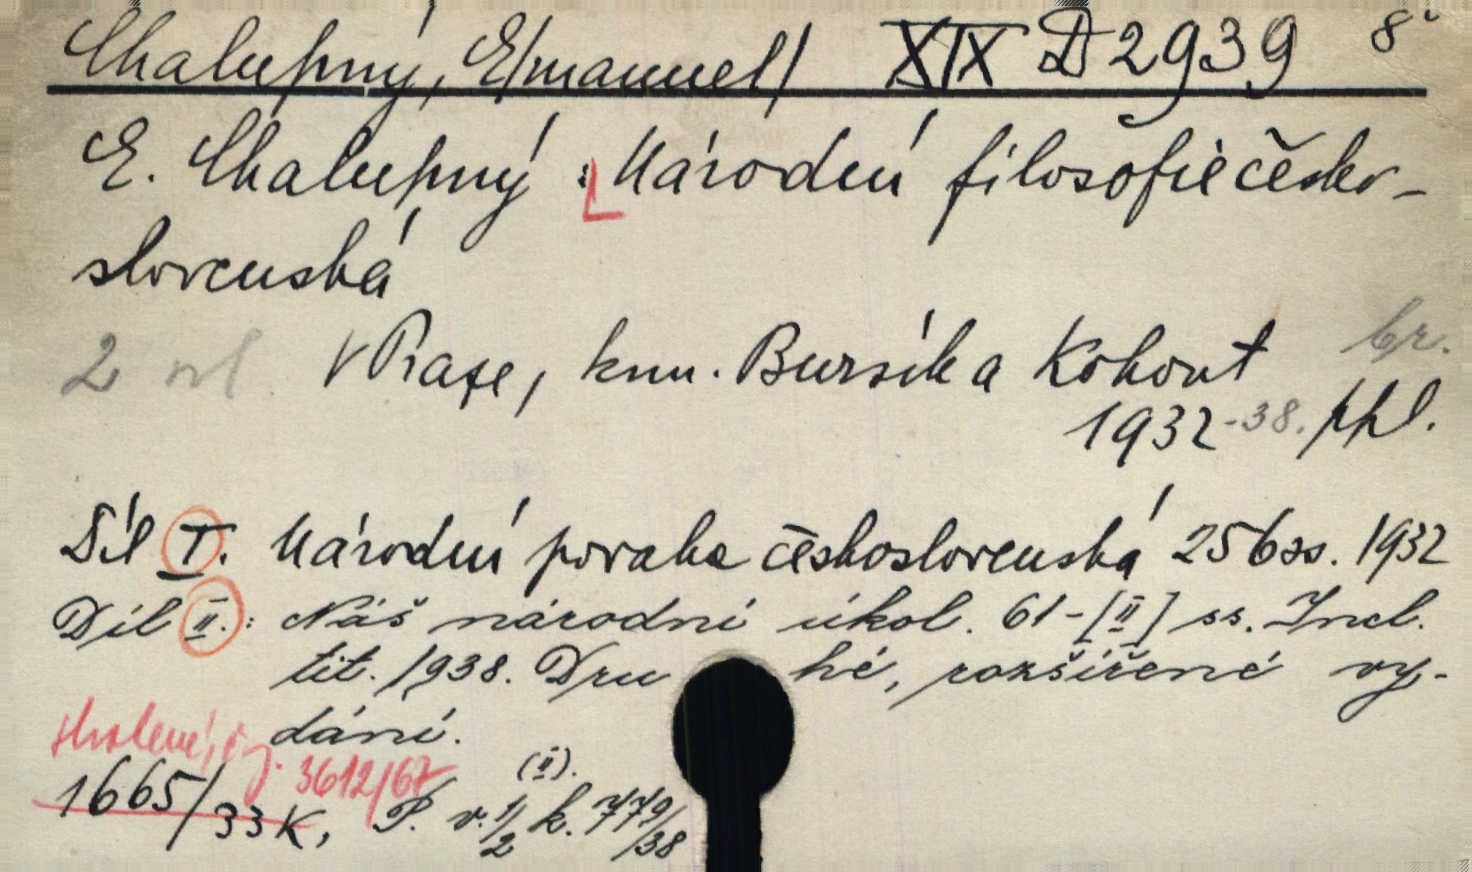 Chalupný, E/manuel/ XIX D 2939 8°
E. Chalupný : Národní filosofie česko-
slovenská
2 vl. V Praze, knn. Bursík a Kohout br.
1932-38. ppl.
Díl I. Národní povaha československá 256 ss. 1932
Díl II.: Náš národní úkol. 61-[II] ss. Incl.
tit. 1938. Druhé, rozšířené vy-
dání.
čj. 3612/67 (II).
1665/33 K, P. v. 1/2 k. 779/38